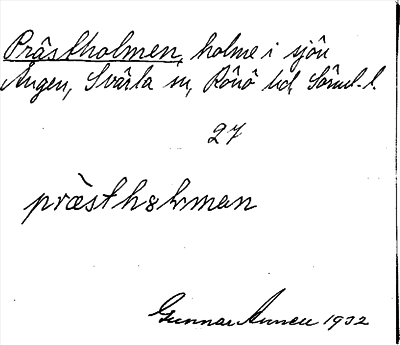 Prästholmen, holme i sjön
Ången, Svärta sn, Rönö hd, Söml. l.
27
præsthɷlman
Gunnar Annell 1932